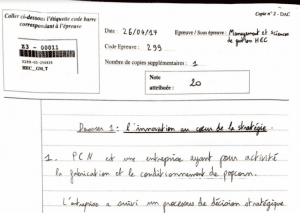 Copie n° 2 - DAC
Coller ci-dessous l'étiquette code barre
correspondant à l'épreuve
Date : 26/04/17
Epreuve / Sous épreuve : Management et sciences
de gestion HEC
K3 - 00011
HEC_GNLT
Code Epreuve : 299
Nombre de copies supplémentaires : 1
Note
attribuée : 20
Dossier 1 : l'innovation au cœur de la stratégie.
1. PCN est une entreprise ayant pour activité
la fabrication et le conditionnement de popcorn.
L'entreprise a suivi un processus de décision stratégique